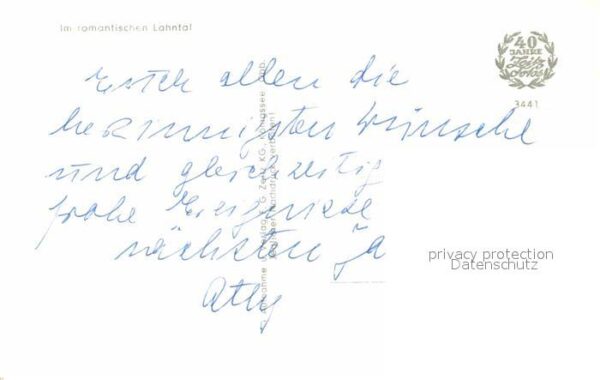 Im romantischen Lahntal
40
JAHRE
Zeitz
Fotos
3441
Euch allen die
herzinnigsten Wünsche
und gleichzeitig
frohe
nächsten Ja
privacy protection
Datenschutz